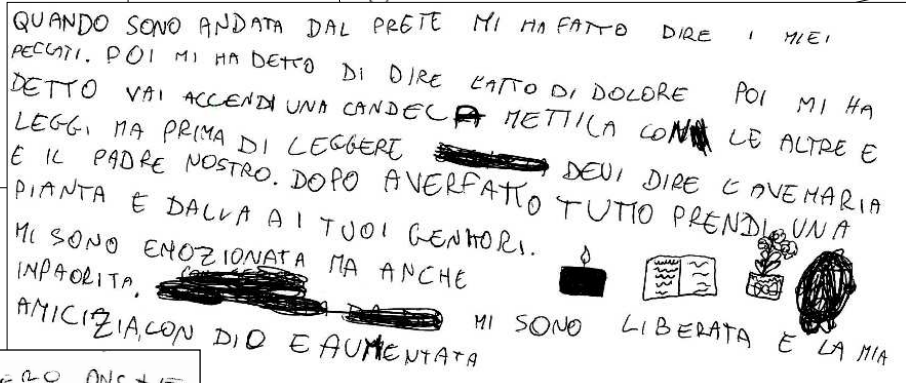 QUANDO SONO ANDATA DAL PRETE MI HA FATTO DIRE I MIEI
PECCATI. POI MI HA DETTO DI DIRE L'ATTO DI DOLORE POI MI HA
DETTO VAI ACCENDI UNA CANDELA METTILA CON LE ALTRE E
LEGGI MA PRIMA DI LEGGERE DEVI DIRE L'AVEMARIA
E IL PADRE NOSTRO. DOPO AVERFATTO TUTTO PRENDI UNA
PIANTA E DALLA AI TUOI GENITORI.
MI SONO EMOZIONATA MA ANCHE
INPAORITA.
MI SONO LIBERATA E LA MIA
AMICIZIA CON DIO E AUMENTATA